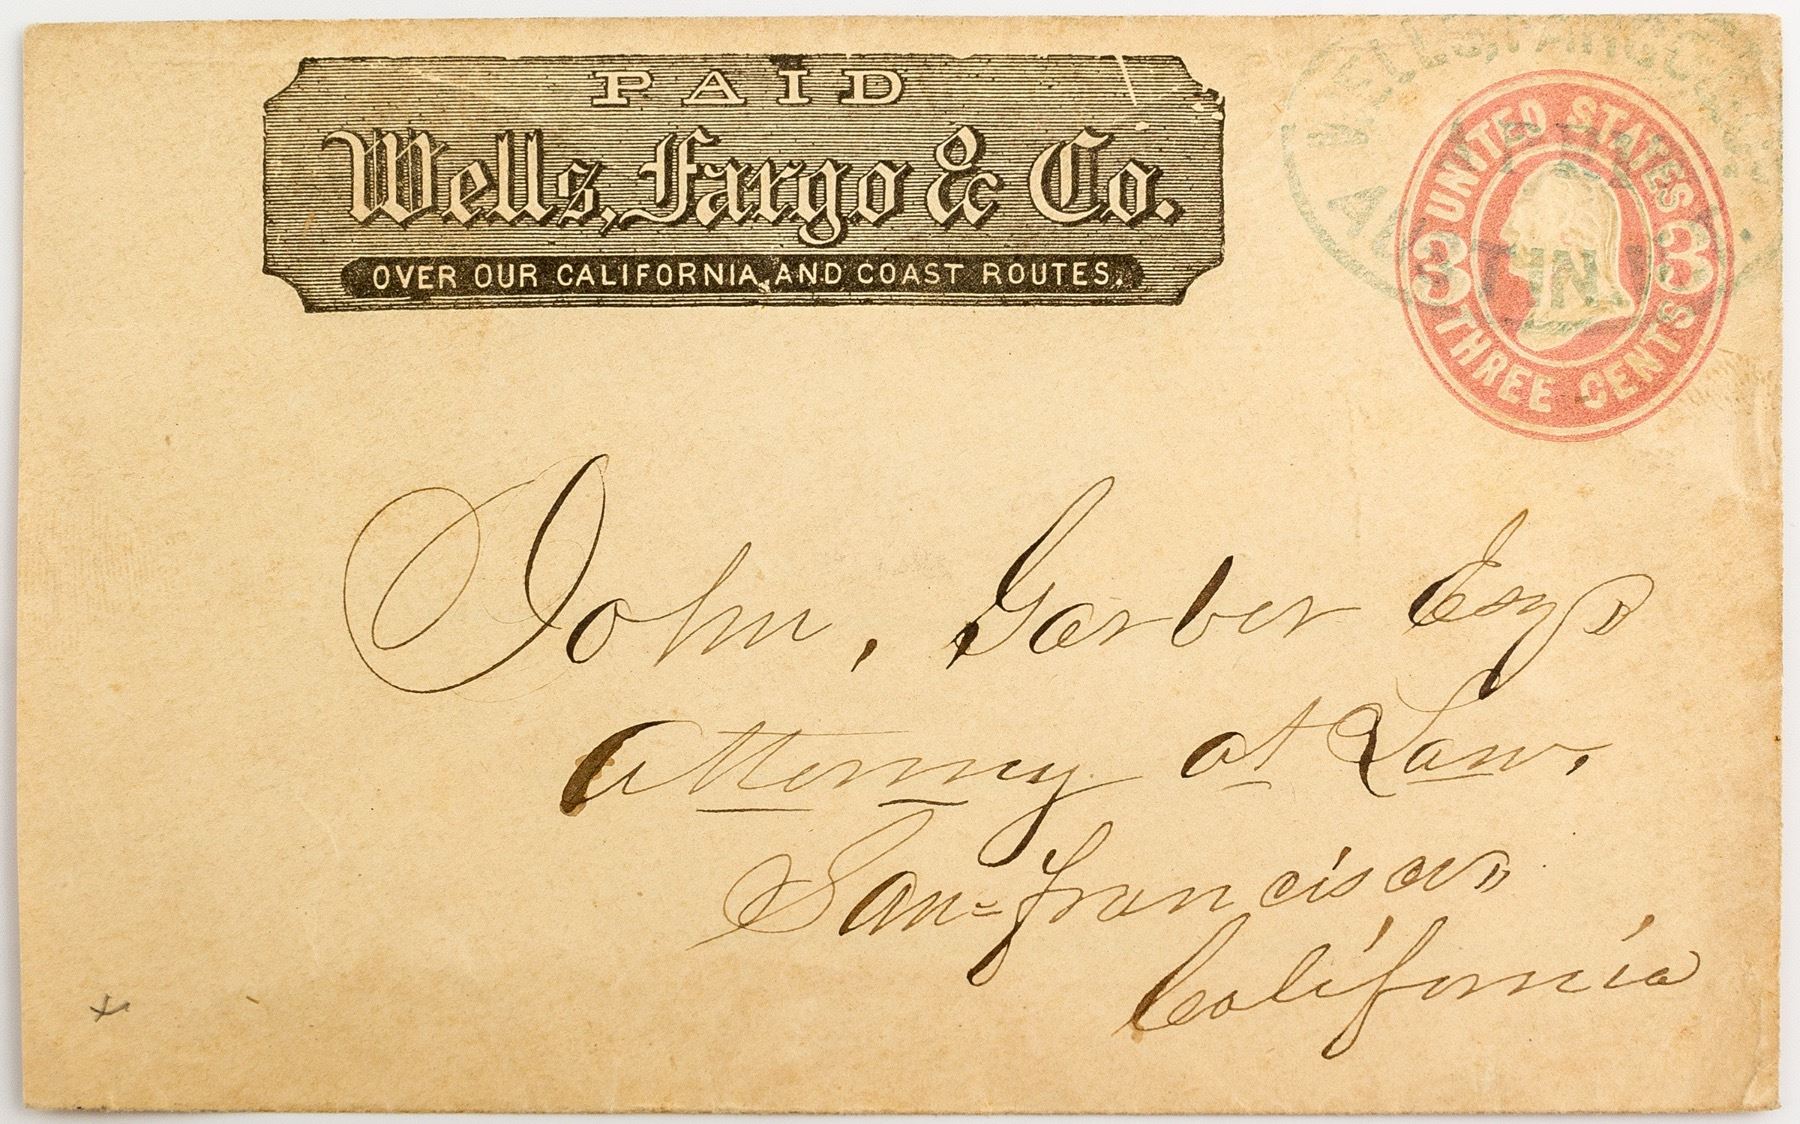 PAID
Wells, Fargo & Co.
OVER OUR CALIFORNIA, AND COAST ROUTES.
WELLS, FARGO &
AUSTIN
UNITED STATES
3 3
THREE CENTS
John, Garber Esq
Attorney at Law,
San=Francisco
California